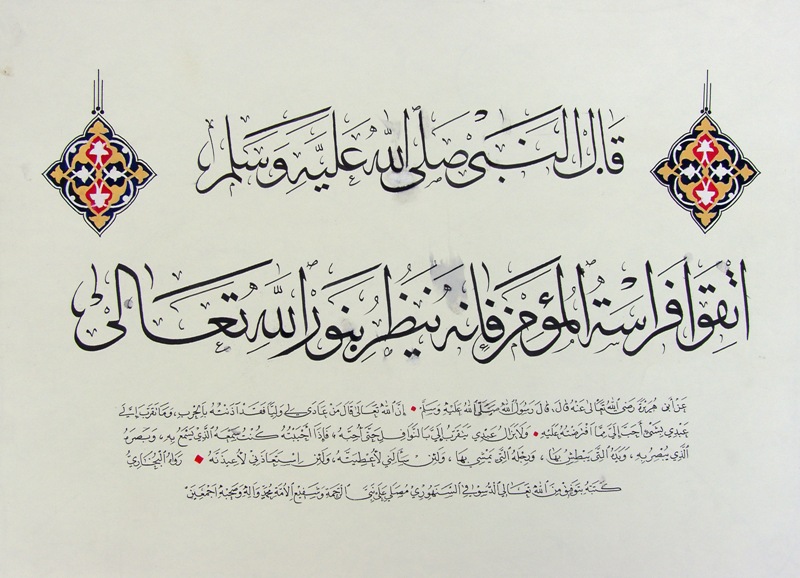 قال النبي صلى الله عليه وسلم
اتقوا فراسة المؤمن فإنه ينظر بنور الله تعالى
عن أبي هريرة رضي الله تعالى عنه قال، قال رسول الله صلى الله عليه وسلم: إن الله تعالى قال من عادى لي وليا فقد آذنته بالحرب، وما تقرب إلي
عبدي بشيء أحب إلي مما افترضته عليه ولا يزال عبدي يتقرب إلي بالنوافل حتى أحبه، فإذا أحببته كنت سمعه الذي يسمع به، وبصره
الذي يبصر به، ويده التي يبطش بها، ورجله التي يمشي بها، ولئن سألني لأعطينه، ولئن استعاذني لأعيذنه رواه البخاري
كتبه بتوفيق من الله تعالى الدسوقي السنهوري مصلي على نبي الرحمة وشفيع الأمة محمد وآله وصحبه أجمعين